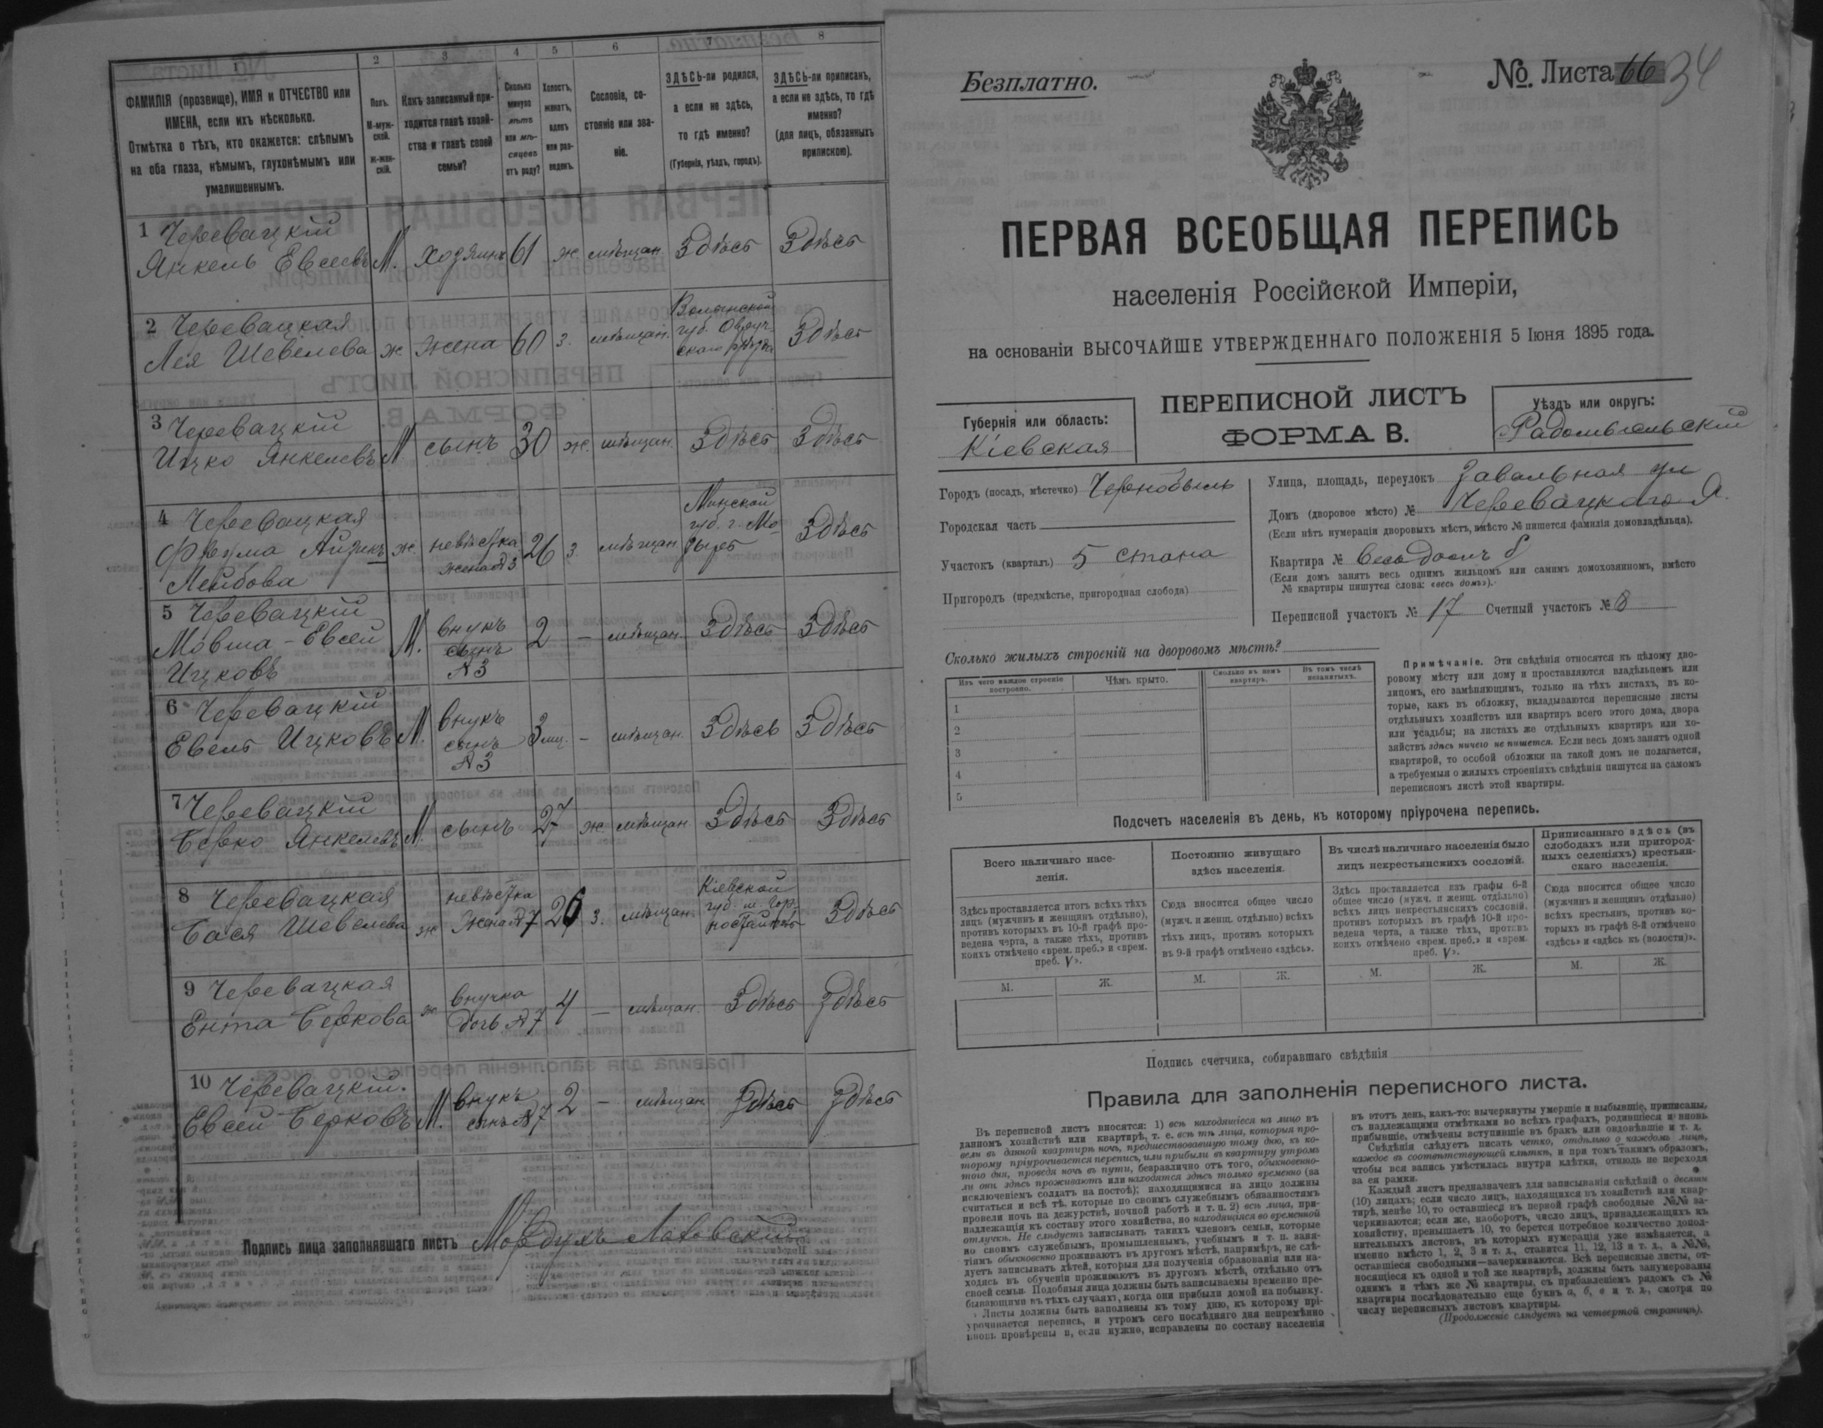 1 2 3 4 5 6 7 8
ФАМИЛІЯ (прозвище), ИМЯ и ОТЧЕСТВО или
ИМЕНА, если ихъ нѣсколько.
Отмѣтка о тѣхъ, кто окажется: слѣпымъ
на оба глаза, нѣмымъ, глухонѣмымъ или
умалишеннымъ.
Полъ.
М-муж-
ской.
ж-жен-
скій.
Какъ записанный при-
ходится главѣ хозяй-
ства и главѣ своей
семьи?
Сколько
минуло
лѣтъ
или мѣ-
сяцевъ
отъ роду?
Холостъ,
женатъ,
вдовъ
или раз-
веденъ.
Сословіе, со-
стояніе или зва-
ніе.
ЗДѢСЬ-ли родился,
а если не здѣсь,
то гдѣ именно?
(Губернія, уѣздъ, городъ).
ЗДѢСЬ-ли приписанъ,
а если не здѣсь, то гдѣ
именно?
(для лицъ, обязанныхъ
припискою).
1 Черевацкій
Янкель Евсеевъ М. хозяинъ 61 ж мѣщан. Здѣсь Здѣсь
2 Черевацкая
Лея Шевелева ж жена 60 з. мѣщан. Волынской
губ. Овруч-
скаго уѣзда Здѣсь
3 Черевацкій
Ицко Янкелевъ М сынъ 30 ж. мѣщан. Здѣсь Здѣсь
4 Черевацкая
Фрума Айзикъ
Лейбова ж. невѣстка
жена №3 26 з. мѣщан. Минской
губ. г. Мо-
зырь Здѣсь
5 Черевацкій
Мовша-Евсей
Ицковъ М. внукъ
сынъ
№3 2 – мѣщан. Здѣсь Здѣсь
6 Черевацкій
Евель Ицковъ М. внукъ
сынъ
№3 3 мц. – мѣщан. Здѣсь Здѣсь
7 Черевацкій
Берко Янкелевъ М. сынъ 27 ж. мѣщан Здѣсь Здѣсь
8 Черевацкая
Бася Шевелева ж невѣстка
жена №7 26 з. мѣщан. Кіевской
губ. м. Гор-
ностайполь Здѣсь
9 Черевацкая
Ента Беркова ж. внучка
дочь №7 4 – мѣщан. Здѣсь Здѣсь
10 Черевацкій.
Евсей Берковъ М. внукъ
сынъ №7 2 – мѣщан Здѣсь Здѣсь
Подпись лица заполнявшаго листъ Мордухъ
Безплатно.
№. Листа 66 34
ПЕРВАЯ ВСЕОБЩАЯ ПЕРЕПИСЬ
населенія Россійской Имперіи,
на основаніи ВЫСОЧАЙШЕ УТВЕРЖДЕННАГО ПОЛОЖЕНІЯ 5 Іюня 1895 года.
ПЕРЕПИСНОЙ ЛИСТЪ
ФОРМА В.
Губернія или область:
Кіевская
Уѣздъ или округъ:
Радомысльскій
Городъ (посадъ, мѣстечко) Чернобыль
Городская часть
Участокъ (кварталъ) 5 стана
Пригородъ (предмѣстье, пригородная слобода)
Улица, площадь, переулокъ Завальная ул
Домъ (дворовое мѣсто) № Черевацкаго Я.
(Если нѣтъ нумераціи дворовыхъ мѣстъ, вмѣсто № пишется фамилія домовладѣльца).
Квартира № весь домъ
(Если домъ занятъ весь однимъ жильцомъ или самимъ домохозяиномъ, вмѣсто
№ квартиры пишутся слова: «весь домъ»).
Переписной участокъ № 17 Счетный участокъ № 8
Сколько жилыхъ строеній на дворовомъ мѣстѣ?
Изъ чего каждое строеніе
построено.
Чѣмъ крыто.
Сколько въ немъ
квартиръ.
Въ томъ числѣ
незанятыхъ.
1
2
3
4
5
Примѣчаніе. Эти свѣдѣнія относятся къ цѣлому дво-
ровому мѣсту или дому и проставляются владѣльцемъ или
лицомъ, его замѣняющимъ, только на тѣхъ листахъ, въ ко-
торые, какъ въ обложку, вкладываются переписные листы
отдѣльныхъ хозяйствъ или квартиръ всего этого дома, двора
или усадьбы; на листахъ же отдѣльныхъ квартиръ или хо-
зяйствъ здѣсь ничего не пишется. Если весь домъ занятъ одной
квартирой, то особой обложки на такой домъ не полагается,
а требуемыя о жилыхъ строеніяхъ свѣдѣнія пишутся на самомъ
переписномъ листѣ этой квартиры.
Подсчетъ населенія въ день, къ которому пріурочена перепись.
Всего наличнаго насе-
ленія.
Здѣсь проставляется итогъ всѣхъ тѣхъ
лицъ (мужчинъ и женщинъ отдѣльно),
противъ которыхъ въ 10-й графѣ про-
ведена черта, а также тѣхъ, противъ
коихъ отмѣчено «врем. преб.» и «врем.
преб. V».
Постоянно живущаго
здѣсь населенія.
Сюда вносится общее число
(мужч. и женщ. отдѣльно) всѣхъ
тѣхъ лицъ, противъ которыхъ
въ 9-й графѣ отмѣчено «здѣсь».
Въ числѣ наличнаго населенія было
лицъ некрестьянскихъ сословій.
Здѣсь проставляется изъ графы 6-й
общее число (мужч. и женщ. отдѣльно)
всѣхъ лицъ некрестьянскихъ сословій,
противъ которыхъ въ графѣ 10-й про-
ведена черта, а также тѣхъ, противъ
коихъ отмѣчено «врем. преб.» и «врем.
преб. V».
Приписаннаго здѣсь (въ
слободахъ или пригород-
ныхъ селеніяхъ) крестьян-
скаго населенія.
Сюда вносится общее число
(мужчинъ и женщинъ отдѣльно)
всѣхъ крестьянъ, противъ ко-
торыхъ въ графѣ 8-й отмѣчено
«здѣсь» и «здѣсь къ (волости)».
М. Ж. М. Ж. М. Ж. М. Ж.
Подпись счетчика, собиравшаго свѣдѣнія
Правила для заполненія переписного листа.
Въ переписной листъ вносятся: 1) всѣ находящіеся на лицо въ
данномъ хозяйствѣ или квартирѣ, т. е. всѣ тѣ лица, которыя про-
вели въ данной квартирѣ ночь, предшествовавшую тому дню, къ ко-
торому пріурочивается перепись, или прибыли въ квартиру утромъ
того дня, проведя ночь въ пути, безразлично отъ того, обыкновенно-
ли они здѣсь проживаютъ или находятся здѣсь только временно (за
исключеніемъ солдатъ на постоѣ); находящимися на лицо должны
считаться и всѣ тѣ, которые по своимъ служебнымъ обязанностямъ
провели ночь на дежурствѣ, ночной работѣ и т. п. 2) всѣ лица, при-
надлежащія къ составу этого хозяйства, но находящіяся во временной
отлучкѣ. Не слѣдуетъ записывать такихъ членовъ семьи, которые
по своимъ служебнымъ, промышленнымъ, учебнымъ и т. п. заня-
тіямъ обыкновенно проживаютъ въ другомъ мѣстѣ, напримѣръ, не слѣ-
дуетъ записывать дѣтей, которыя для полученія образованія или на-
ходясь въ обученіи проживаютъ въ другомъ мѣстѣ, отдѣльно отъ
своей семьи. Подобныя лица должны быть записываемы временно пре-
бывающими въ тѣхъ случаяхъ, когда они прибыли домой на побывку.
Листы должны быть заполнены къ тому дню, къ которому прі-
урочивается перепись, и утромъ сего послѣдняго дня непремѣнно
вновь провѣрены и, если нужно, исправлены по составу населенія
въ этотъ день, какъ-то: вычеркнуты умершіе и выбывшіе, приписаны,
съ надлежащими отмѣтками во всѣхъ графахъ, родившіеся и вновь
прибывшіе, отмѣчены вступившіе въ бракъ или овдовѣвшіе и т. д.
Свѣдѣнія слѣдуетъ писать четко, отдѣльно о каждомъ лицѣ,
каждое въ соотвѣтствующей клѣткѣ, и при томъ такимъ образомъ,
чтобы вся запись умѣстилась внутри клѣтки, отнюдь не переходя
за ея рамки.
Каждый листъ предназначенъ для записыванія свѣдѣній о десяти
(10) лицахъ; если число лицъ, находящихся въ хозяйствѣ или квар-
тирѣ, менѣе 10, то оставшіеся въ первой графѣ свободные №№ за-
черкиваются; если же, наоборотъ, число лицъ, принадлежащихъ къ
хозяйству, превышаетъ 10, то берется потребное количество допол-
нительныхъ листовъ, въ которыхъ нумерація уже измѣняется, а
именно вмѣсто 1, 2, 3 и т. д., ставится 11, 12, 13 и т. д., а №№,
оставшіеся свободными—зачеркиваются. Всѣ переписные листы, от-
носящіеся къ одной и той же квартирѣ, должны быть занумерованы
однимъ и тѣмъ же № квартиры, съ прибавленіемъ рядомъ съ №
квартиры послѣдовательно еще буквъ а, б, в и т. д., смотря по
числу переписныхъ листовъ квартиры.
(Продолженіе слѣдуетъ на четвертой страницѣ).